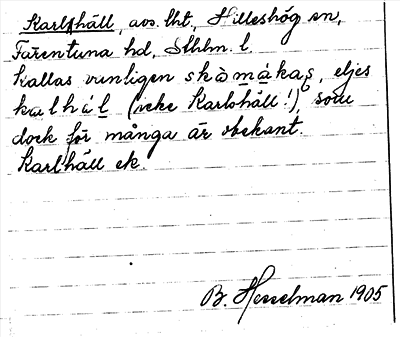 Karlhäll, avs. lht, Hilleshög sn,
Färentuna hd, Sthlm. l.
Kallas vanligen skòmákas, eljes
kalhál (icke Karlshäll!), som
dock för många är obekant.
Karlhäll ek.
B. Hesselman 1905